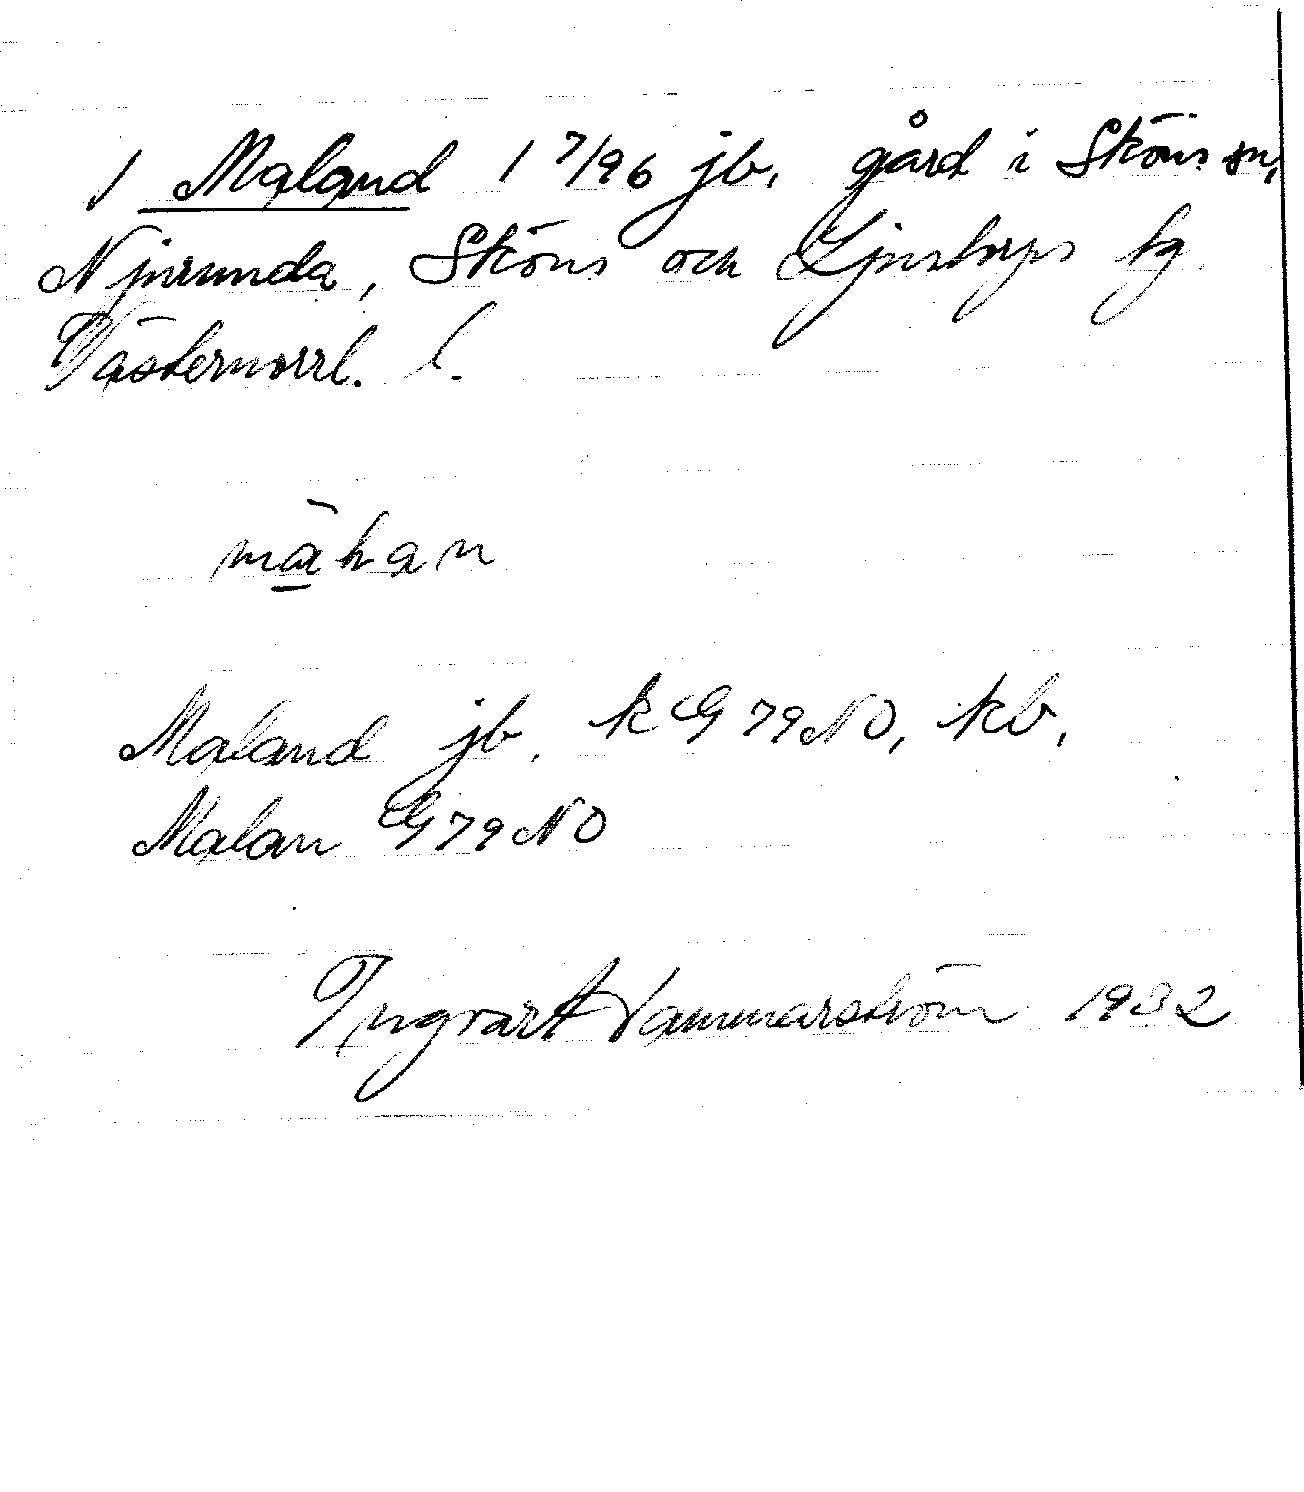 1 Maland 1 7/96 jb, gård i Sköns sn,
Njurunda, Sköns och Ljustorps tg
Västernorrl. l.
mähan
Maland jb. KG 79 NO, kb,
Malan G 79 NO
Ingvart Vammarström 1932